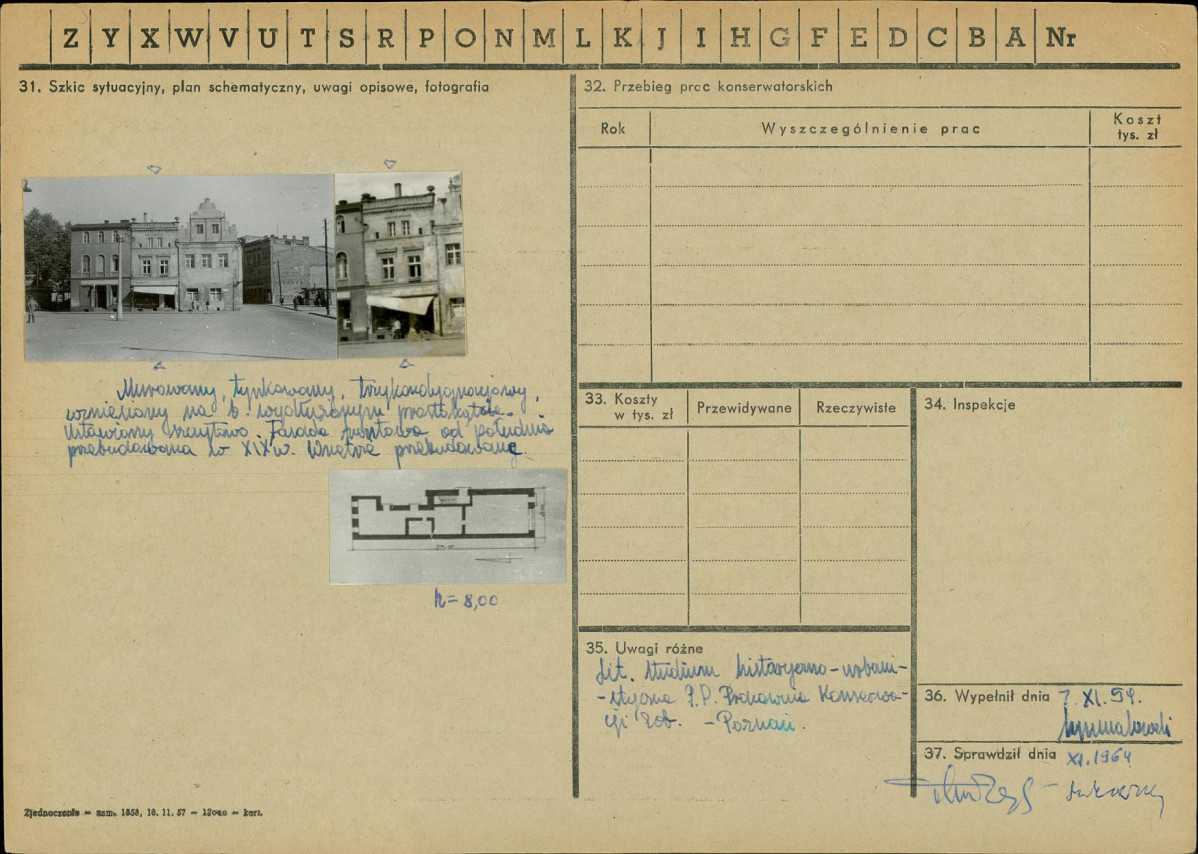 Z Y X W V U T S R P O N M L K J I H G F E D C B A Nr
31. Szkic sytuacyjny, plan schematyczny, uwagi opisowe, fotografia
Murowany, tynkowany, trzykondygnacyjny,
wzniesiony na b. wydłużonym prostokącie.
Ustawiony szczytowo. Fasada frontowa od południa
przebudowana w XIX w. Wnętrze przebudowane.
h = 8,00
Zjednoczenie — zam. 1858, 16. 11. 57 — 120000 — kart.
32. Przebieg prac konserwatorskich
Rok
Wyszczególnienie prac
Koszt
tys. zł
33. Koszty
w tys. zł
Przewidywane
Rzeczywiste
34. Inspekcje
35. Uwagi różne
Lit. Studium historyczno-urbani-
-styczne P.P. Pracownie Konserwa-
cji Zab. - Poznań.
36. Wypełnił dnia 7. XI. 59.
37. Sprawdził dnia XI. 1964